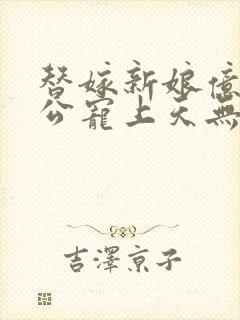 替嫁新娘億
公寵上天無
吉澤京子